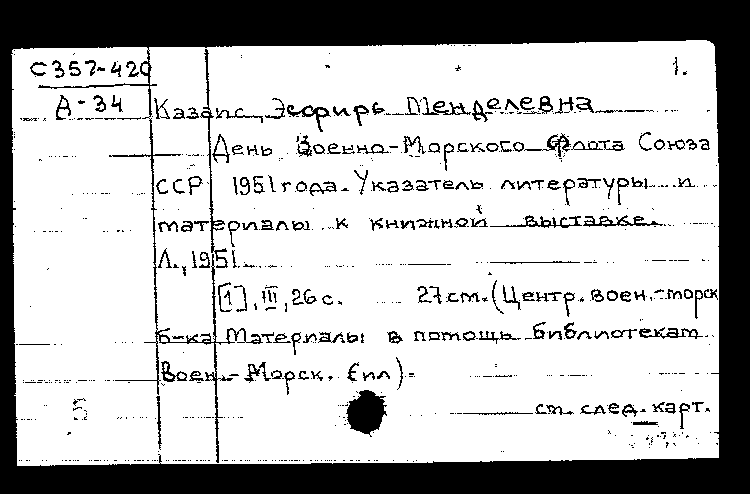 С357-420
А-34
1.
Казапс, Эсфирь Менделевна
День Военно-Морского Флота Союза
ССР 1951 года. Указатель литературы и
материалы к книжной выставке.
Л., 1951.
[1], III, 26 с. 27 см. (Центр. воен.-морск
б-ка Материалы в помощь библиотекам
Воен.-Морск. Сил).
5
см. след. карт.